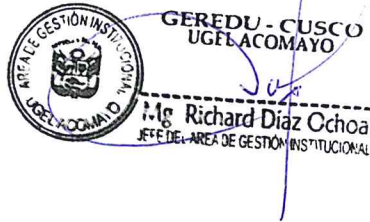 AREA DE GESTIÓN INSTITUCIONAL
UGEL ACOMAYO
GEREDU - CUSCO
UGEL ACOMAYO
Mg Richard Diaz Ochoa
JEFE DEL AREA DE GESTIÓN INSTITUCIONAL